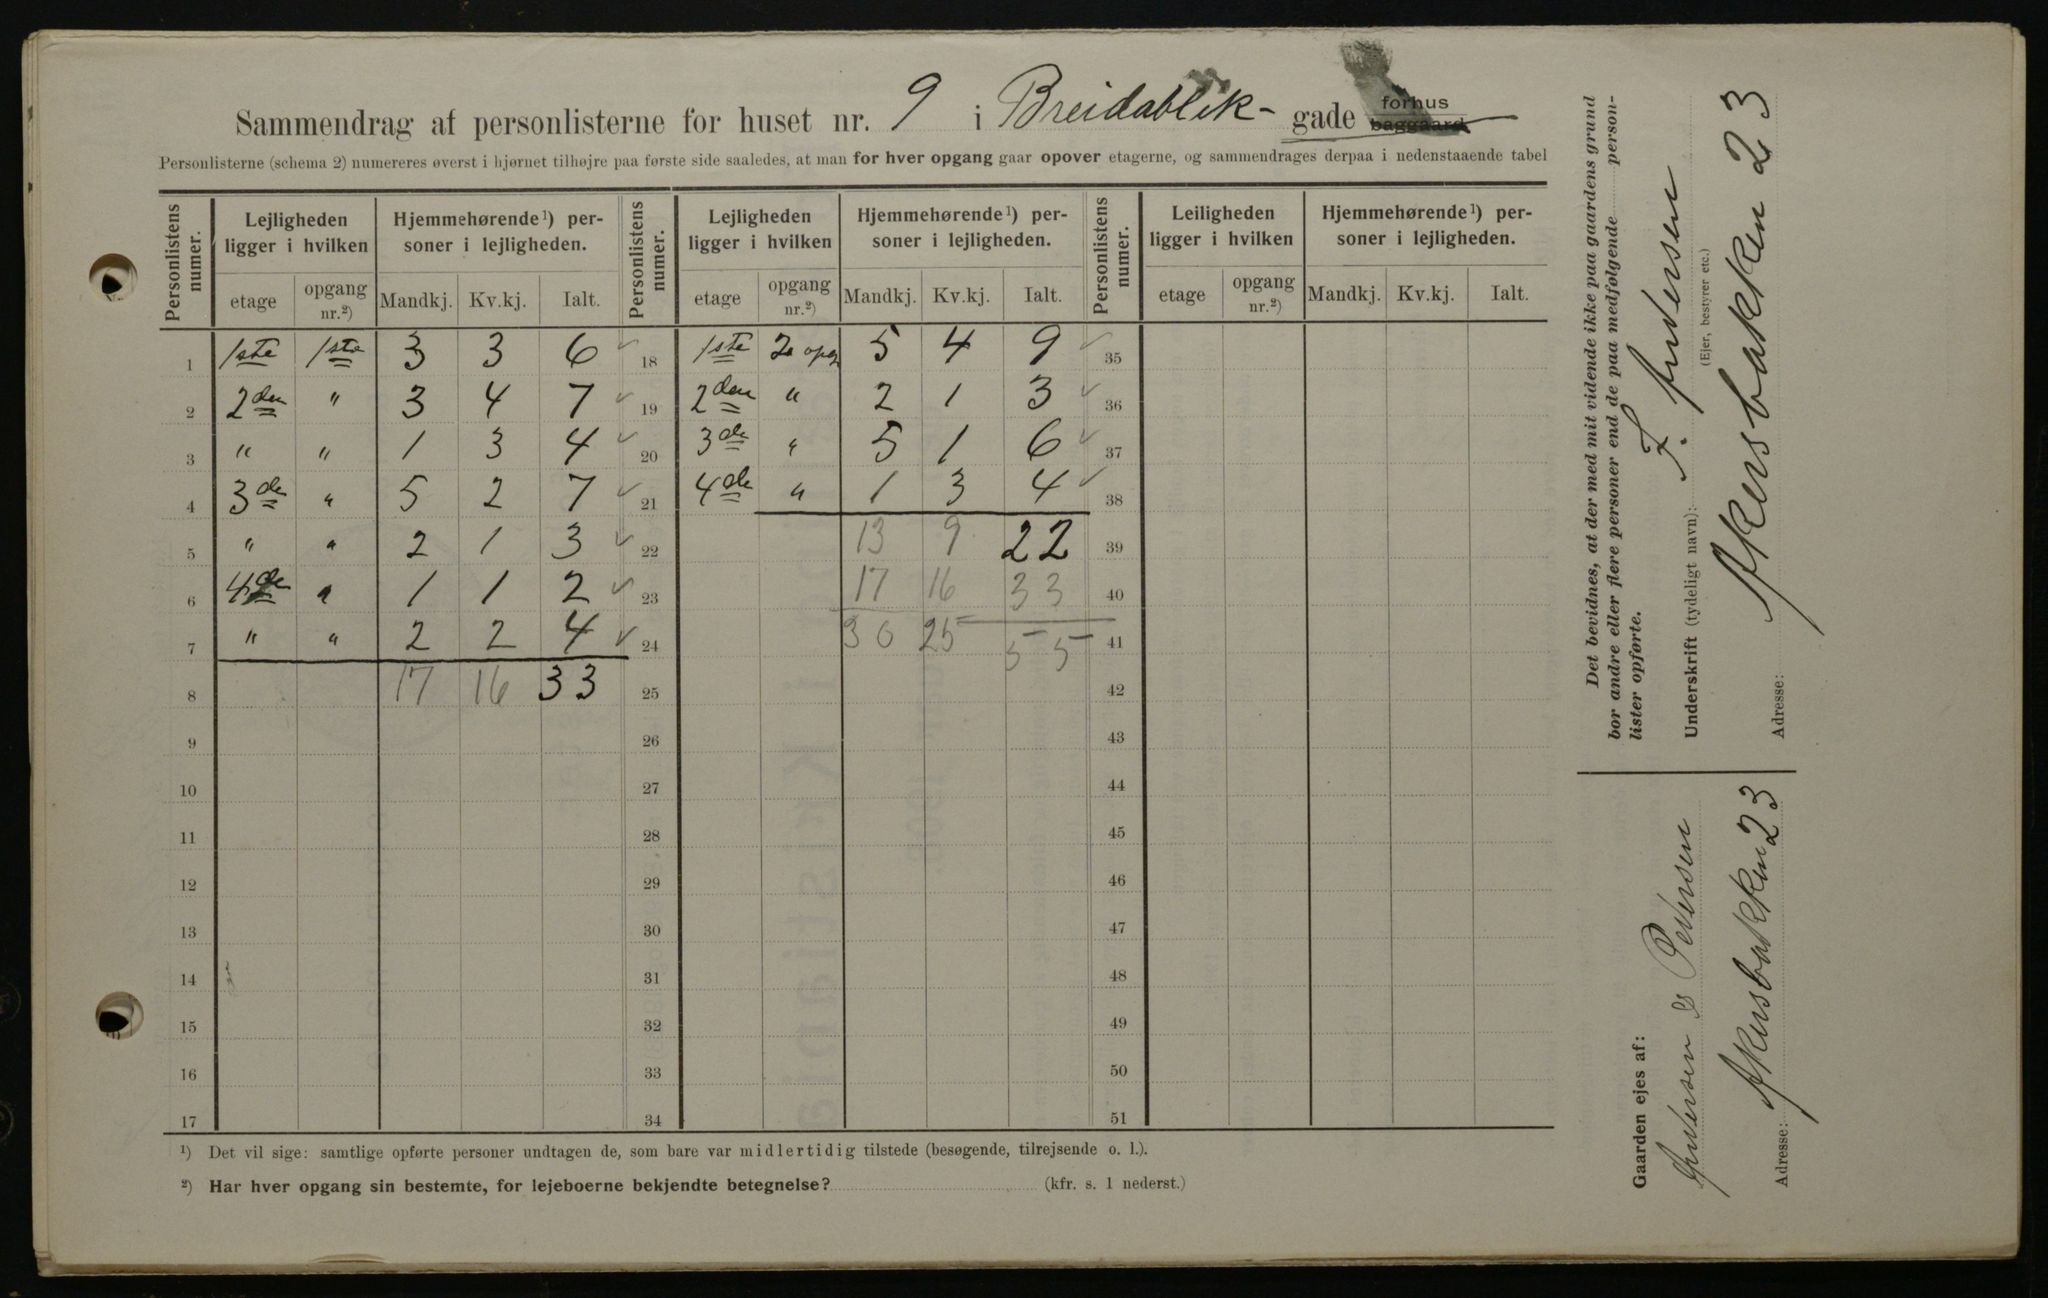 Sammendrag af personlisterne for huset nr. 9 i Breidablik- gade forhus baggaard
Personlisterne (schema 2) numereres øverst i hjørnet tilhøjre paa første side saaledes, at man for hver opgang gaar opover etagerne, og sammendrages derpaa i nedenstaaende tabel
Personlistens numer. Lejligheden ligger i hvilken Hjemmehørende¹) personer i lejligheden. Personlistens numer. Lejligheden ligger i hvilken Hjemmehørende¹) personer i lejligheden. Personlistens numer. Leiligheden ligger i hvilken Hjemmehørende¹) personer i lejligheden.
etage opgang nr.²) Mandkj. Kv.kj. Ialt. etage opgang nr.²) Mandkj. Kv.kj. Ialt. etage opgang nr.²) Mandkj. Kv.kj. Ialt.
1 1ste 1ste 3 3 6 ✓ 18 1ste 2 opg 5 4 9 ✓ 35
2 2den " 3 4 7 ✓ 19 2den " 2 1 3 ✓ 36
3 " " 1 3 4 ✓ 20 3de " 5 1 6 ✓ 37
4 3de " 5 2 7 ✓ 21 4de " 1 3 4 ✓ 38
5 " " 2 1 3 ✓ 22 13 9 22 39
6 4de " 1 1 2 ✓ 23 17 16 33 40
7 " " 2 2 4 ✓ 24 30 25 55 41
8 17 16 33 25 42
9 26 43
10 27 44
11 28 45
12 29 46
13 30 47
14 31 48
15 32 49
16 33 50
17 34 51
¹) Det vil sige: samtlige opførte personer undtagen de, som bare var midlertidig tilstede (besøgende, tilrejsende o. l.).
²) Har hver opgang sin bestemte, for lejeboerne bekjendte betegnelse? (kfr. s. 1 nederst.)
Det bevidnes, at der med mit vidende ikke paa gaardens grund
bor andre eller flere personer end de paa medfølgende person-
lister opførte.
Underskrift (tydeligt navn): F. Andersen
(Ejer, bestyrer etc.)
Adresse: Akersbakken 23
Gaarden ejes af:
Andersen & Pedersen
Adresse: Akersbakken 23